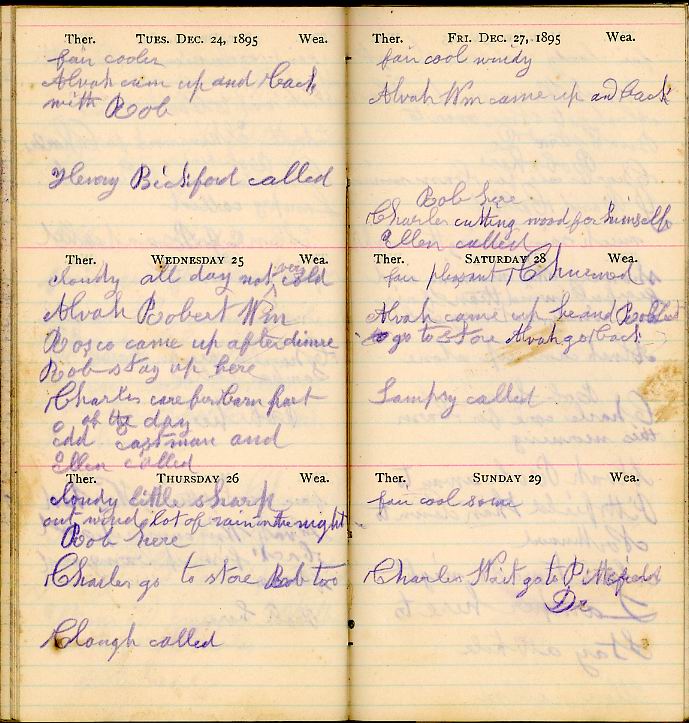 Ther. TUES. DEC. 24, 1895 Wea.
fair cooler
Alvah cam up and back
with Rob
Henry Bickford called
Ther. WEDNESDAY 25 Wea.
cloudy all day not very cold
Alvah Robert Wm
Rosco came up after dinne
Rob stay up here
Charles care for barn part
of the day
edd eastman and
Ellen called
Ther. THURSDAY 26 Wea.
cloudy little sharp
out wind lot of rain in the night
Rob here
Charles go to store Bob too
Clough called
Ther. FRI. DEC. 27, 1895 Wea.
fair cool windy
Alvah Wm came up and back
Rob here
Charles cutting wood for himself
Ellen called
Ther. SATURDAY 28 Wea.
fair pleasant I Churned
Alvah came up he and Rob
to go to store Alvah go back
Lampsy called
Ther. SUNDAY 29 Wea.
fair cool some
Charles Wait go to Pittsfield
Dr